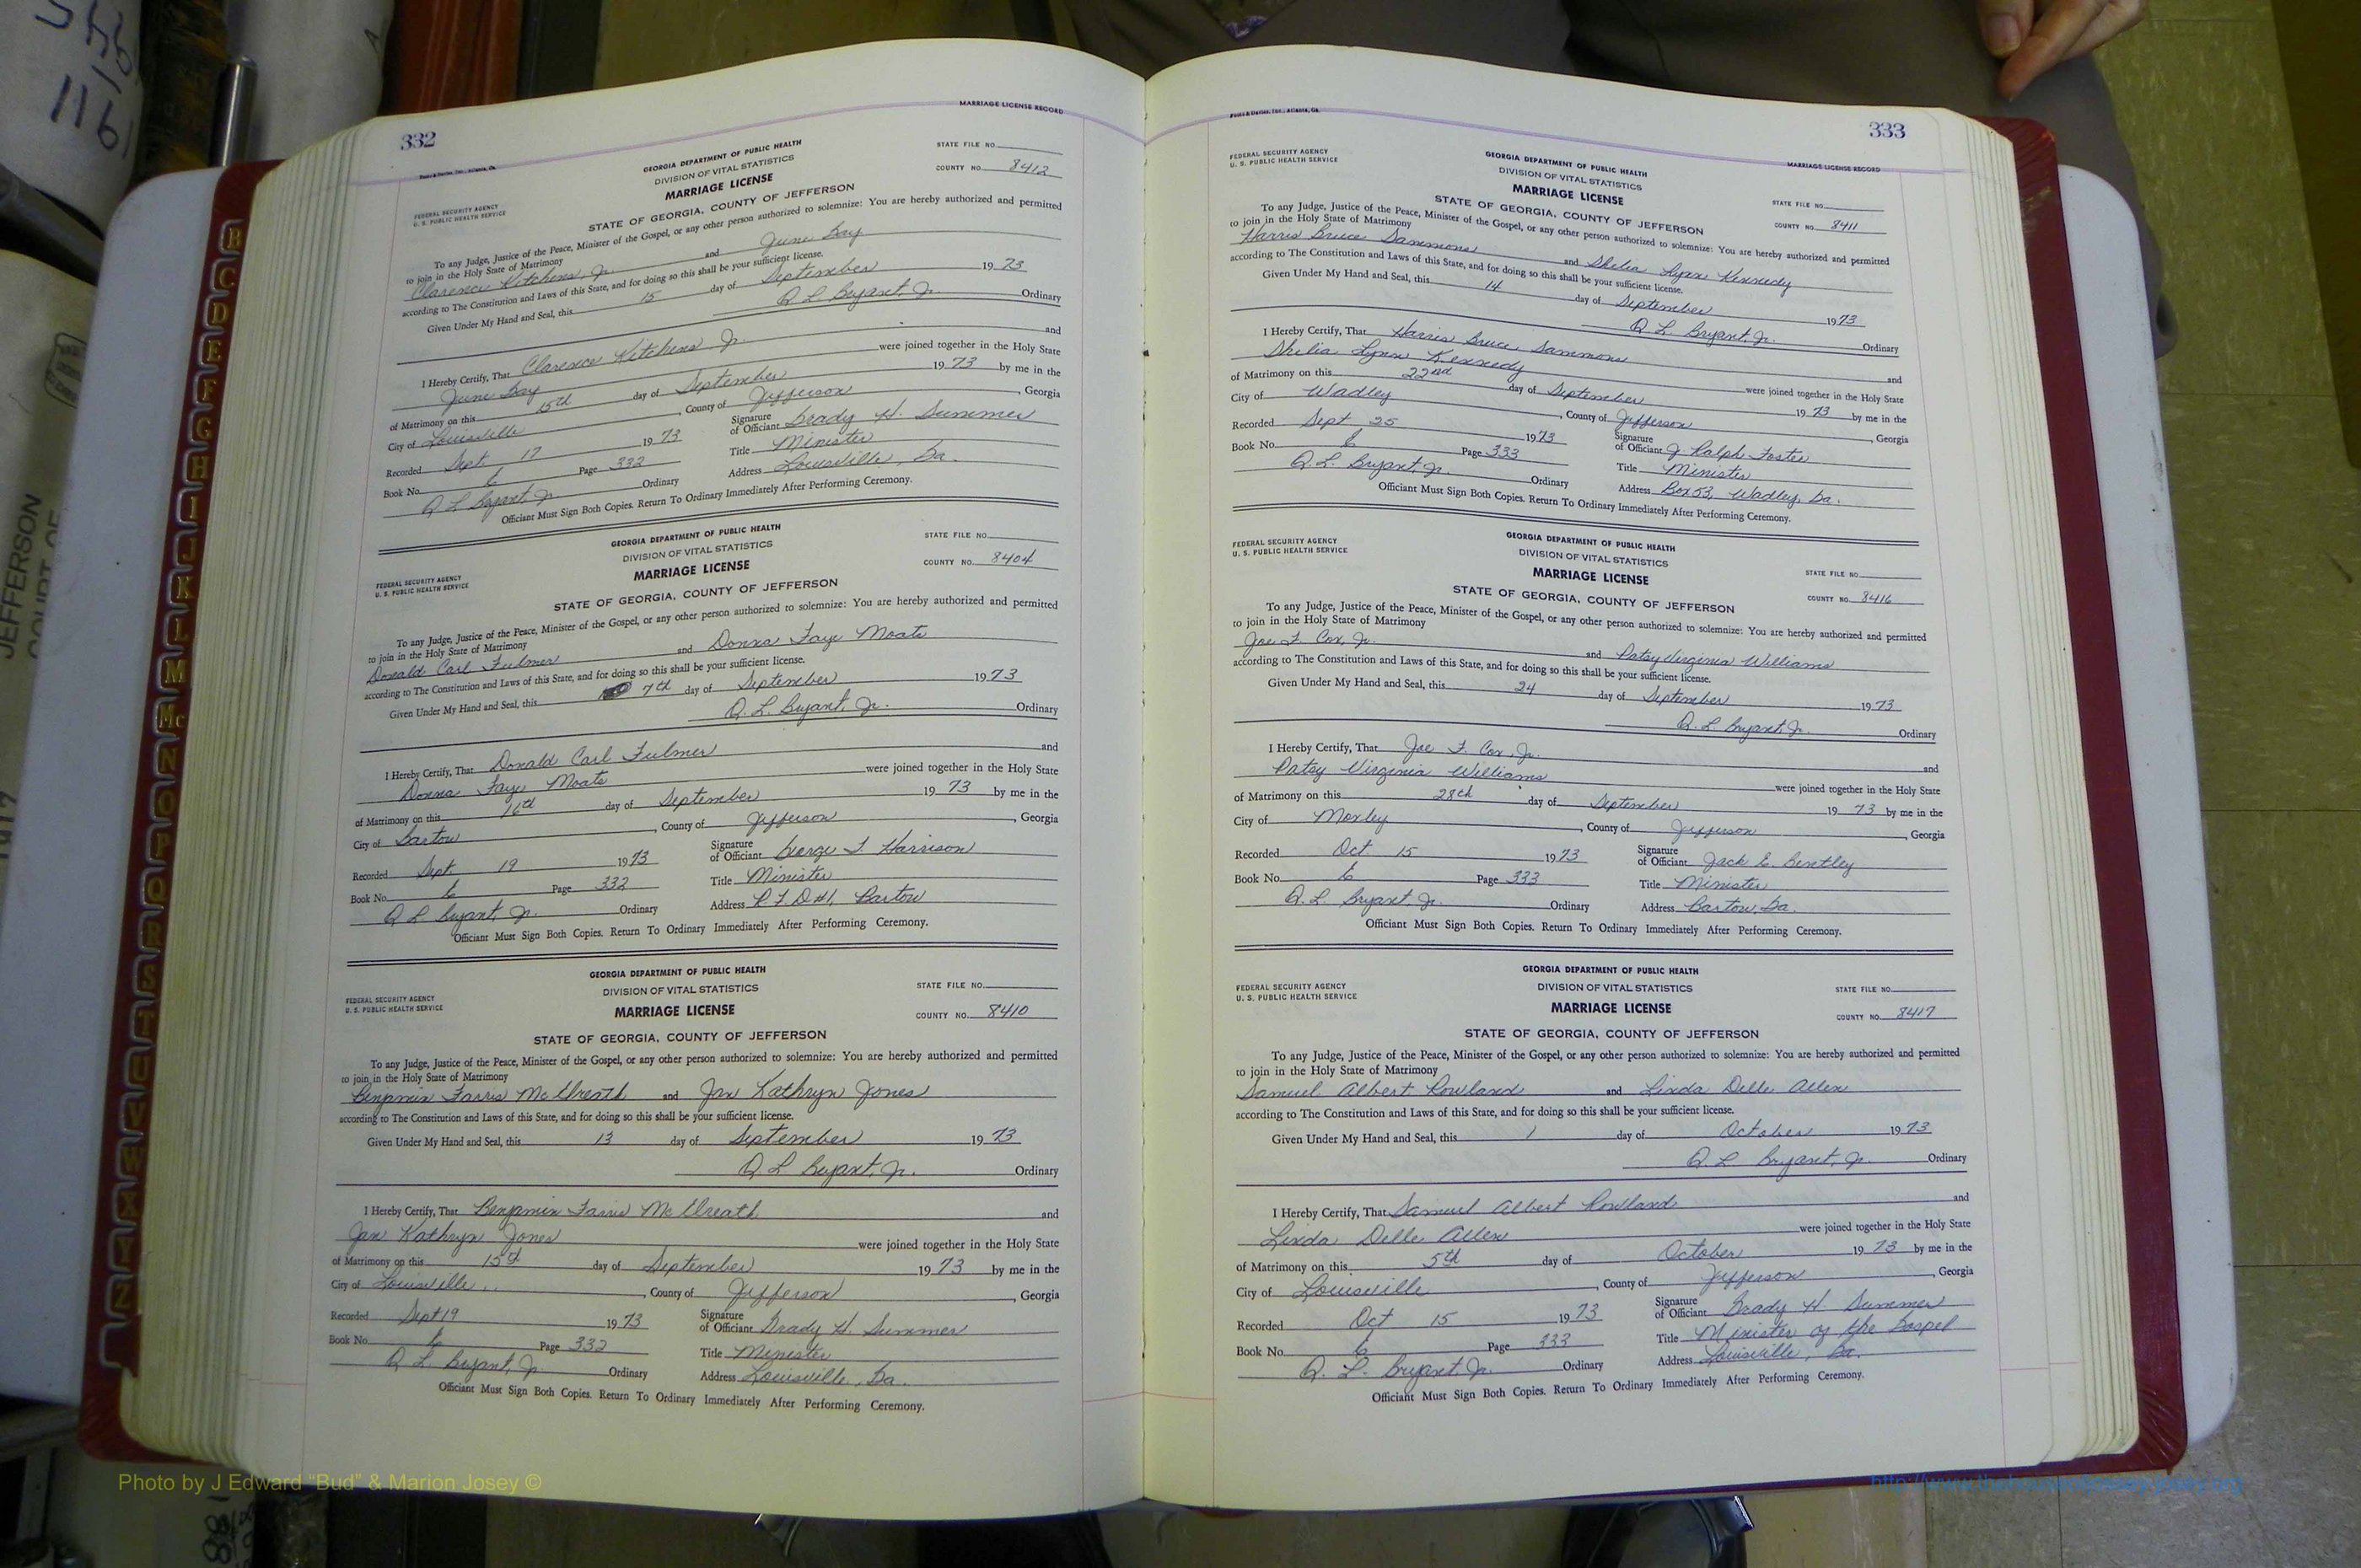 332
MARRIAGE LICENSE RECORD
GEORGIA DEPARTMENT OF PUBLIC HEALTH
STATE FILE NO.
DIVISION OF VITAL STATISTICS
COUNTY NO. 8412
MARRIAGE LICENSE
FEDERAL SECURITY AGENCY
U. S. PUBLIC HEALTH SERVICE
STATE OF GEORGIA, COUNTY OF JEFFERSON
To any Judge, Justice of the Peace, Minister of the Gospel, or any other person authorized to solemnize: You are hereby authorized and permitted
to join in the Holy State of Matrimony
Clarence Kitchens Jr. and June Gay
according to The Constitution and Laws of this State, and for doing so this shall be your sufficient license.
Given Under My Hand and Seal, this 15 day of September 1973
Q L Bryant, Jr. Ordinary
I Hereby Certify, That Clarence Kitchens Jr. and
June Gay were joined together in the Holy State
of Matrimony on this 15th day of September 1973 by me in the
City of Louisville, County of Jefferson, Georgia
Recorded Sept 17 1973 Signature of Officiant Grady H. Summer
Book No. 6 Page 332 Title Minister
Q L Bryant, Jr. Ordinary Address Louisville, Ga.
Officiant Must Sign Both Copies. Return To Ordinary Immediately After Performing Ceremony.
GEORGIA DEPARTMENT OF PUBLIC HEALTH
STATE FILE NO.
DIVISION OF VITAL STATISTICS
COUNTY NO. 8404
MARRIAGE LICENSE
FEDERAL SECURITY AGENCY
U. S. PUBLIC HEALTH SERVICE
STATE OF GEORGIA, COUNTY OF JEFFERSON
To any Judge, Justice of the Peace, Minister of the Gospel, or any other person authorized to solemnize: You are hereby authorized and permitted
to join in the Holy State of Matrimony
Donald Carl Fulmer and Donna Faye Moats
according to The Constitution and Laws of this State, and for doing so this shall be your sufficient license.
Given Under My Hand and Seal, this 7th day of September 1973
Q. L. Bryant, Jr. Ordinary
I Hereby Certify, That Donald Carl Fulmer and
Donna Faye Moats were joined together in the Holy State
of Matrimony on this 16th day of September 1973 by me in the
City of Bartow, County of Jefferson, Georgia
Recorded Sept. 19 1973 Signature of Officiant George F. Harrison
Book No. 6 Page 332 Title Minister
Q L Bryant, Jr. Ordinary Address R. F. D #1, Bartow
Officiant Must Sign Both Copies. Return To Ordinary Immediately After Performing Ceremony.
GEORGIA DEPARTMENT OF PUBLIC HEALTH
DIVISION OF VITAL STATISTICS
STATE FILE NO.
FEDERAL SECURITY AGENCY
U. S. PUBLIC HEALTH SERVICE
MARRIAGE LICENSE
COUNTY NO. 8410
STATE OF GEORGIA, COUNTY OF JEFFERSON
To any Judge, Justice of the Peace, Minister of the Gospel, or any other person authorized to solemnize: You are hereby authorized and permitted
to join in the Holy State of Matrimony
Benjamin Farris McElreath and Jan Kathryn Jones
according to The Constitution and Laws of this State, and for doing so this shall be your sufficient license.
Given Under My Hand and Seal, this 13 day of September 1973
Q L Bryant, Jr. Ordinary
I Hereby Certify, That Benjamin Farris McElreath and
Jan Kathryn Jones were joined together in the Holy State
of Matrimony on this 15th day of September 1973 by me in the
City of Louisville, County of Jefferson, Georgia
Recorded Sept 19 1973 Signature of Officiant Grady H. Summer
Book No. 6 Page 332 Title Minister
Q L Bryant, Jr. Ordinary Address Louisville, Ga.
Officiant Must Sign Both Copies. Return To Ordinary Immediately After Performing Ceremony.
333
MARRIAGE LICENSE RECORD
FEDERAL SECURITY AGENCY
U. S. PUBLIC HEALTH SERVICE
GEORGIA DEPARTMENT OF PUBLIC HEALTH
DIVISION OF VITAL STATISTICS
MARRIAGE LICENSE
STATE FILE NO.
STATE OF GEORGIA, COUNTY OF JEFFERSON
COUNTY NO. 8411
To any Judge, Justice of the Peace, Minister of the Gospel, or any other person authorized to solemnize: You are hereby authorized and permitted
to join in the Holy State of Matrimony
Harris Bruce Sammons and Shelia Lynn Kennedy
according to The Constitution and Laws of this State, and for doing so this shall be your sufficient license.
Given Under My Hand and Seal, this 14 day of September 1973
Q L. Bryant, Jr. Ordinary
I Hereby Certify, That Harris Bruce Sammons and
Shelia Lynn Kennedy were joined together in the Holy State
of Matrimony on this 22nd day of September 1973 by me in the
City of Wadley, County of Jefferson, Georgia
Recorded Sept 25 1973 Signature of Officiant J Ralph Foster
Book No. 6 Page 333 Title Minister
Q. L. Bryant, Jr. Ordinary Address Box 53, Wadley, Ga.
Officiant Must Sign Both Copies. Return To Ordinary Immediately After Performing Ceremony.
FEDERAL SECURITY AGENCY
U. S. PUBLIC HEALTH SERVICE
GEORGIA DEPARTMENT OF PUBLIC HEALTH
DIVISION OF VITAL STATISTICS
MARRIAGE LICENSE
STATE FILE NO.
STATE OF GEORGIA, COUNTY OF JEFFERSON
COUNTY NO. 8416
To any Judge, Justice of the Peace, Minister of the Gospel, or any other person authorized to solemnize: You are hereby authorized and permitted
to join in the Holy State of Matrimony
Joe F. Cox, Jr. and Patsy Virginia Williams
according to The Constitution and Laws of this State, and for doing so this shall be your sufficient license.
Given Under My Hand and Seal, this 24 day of September 1973
Q. L. Bryant, Jr. Ordinary
I Hereby Certify, That Joe F. Cox, Jr. and
Patsy Virginia Williams were joined together in the Holy State
of Matrimony on this 28th day of September 1973 by me in the
City of Moxley, County of Jefferson, Georgia
Recorded Oct 15 1973 Signature of Officiant Jack E. Bentley
Book No. 6 Page 333 Title Minister
Q. L. Bryant Jr. Ordinary Address Bartow, Ga.
Officiant Must Sign Both Copies. Return To Ordinary Immediately After Performing Ceremony.
GEORGIA DEPARTMENT OF PUBLIC HEALTH
FEDERAL SECURITY AGENCY
U. S. PUBLIC HEALTH SERVICE
DIVISION OF VITAL STATISTICS
STATE FILE NO.
MARRIAGE LICENSE
COUNTY NO. 8417
STATE OF GEORGIA, COUNTY OF JEFFERSON
To any Judge, Justice of the Peace, Minister of the Gospel, or any other person authorized to solemnize: You are hereby authorized and permitted
to join in the Holy State of Matrimony
Samuel Albert Rowland and Linda Delle Allen
according to The Constitution and Laws of this State, and for doing so this shall be your sufficient license.
Given Under My Hand and Seal, this 1 day of October 1973
Q. L Bryant, Jr. Ordinary
I Hereby Certify, That Samuel Albert Rowland and
Linda Delle Allen were joined together in the Holy State
of Matrimony on this 5th day of October 1973 by me in the
City of Louisville, County of Jefferson, Georgia
Recorded Oct 15 1973 Signature of Officiant Grady H. Summer
Book No. 6 Page 333 Title Minister of the Gospel
Q. L. Bryant, Jr. Ordinary Address Louisville, Ga.
Officiant Must Sign Both Copies. Return To Ordinary Immediately After Performing Ceremony.
B
C
D
E
F
G
H
I
J
K
L
M
Mc
N
O
P
Q
R
S
T
U
V
W
X
Y
Z
JEFFERSON
COURT OF
Photo by J Edward "Bud" & Marion Josey ©